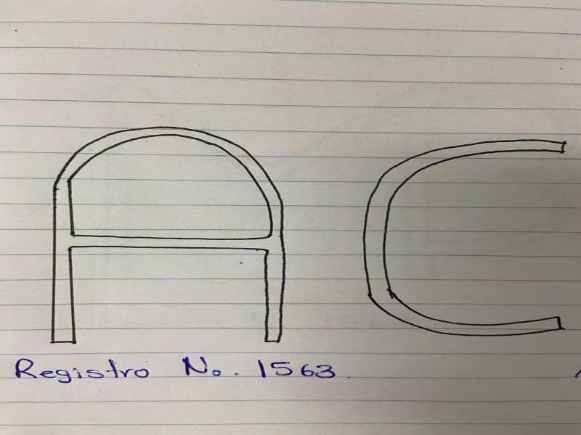 A C
Registro No. 1563.